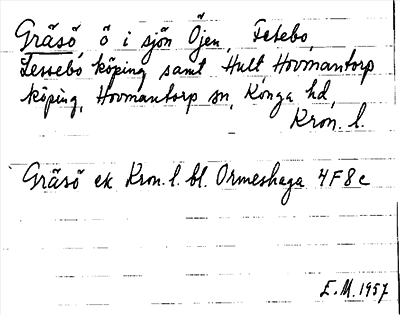 Gräsö, ö i sjön Öjen, Fetebo,
Lessebo köping samt Hult, Hovmantorp
köping, Hovmantorp sn, Konga hd,
Kron. l.
Gräsö ek Kron. l. bl. Ormeshaga 4F8c
E.M. 1957